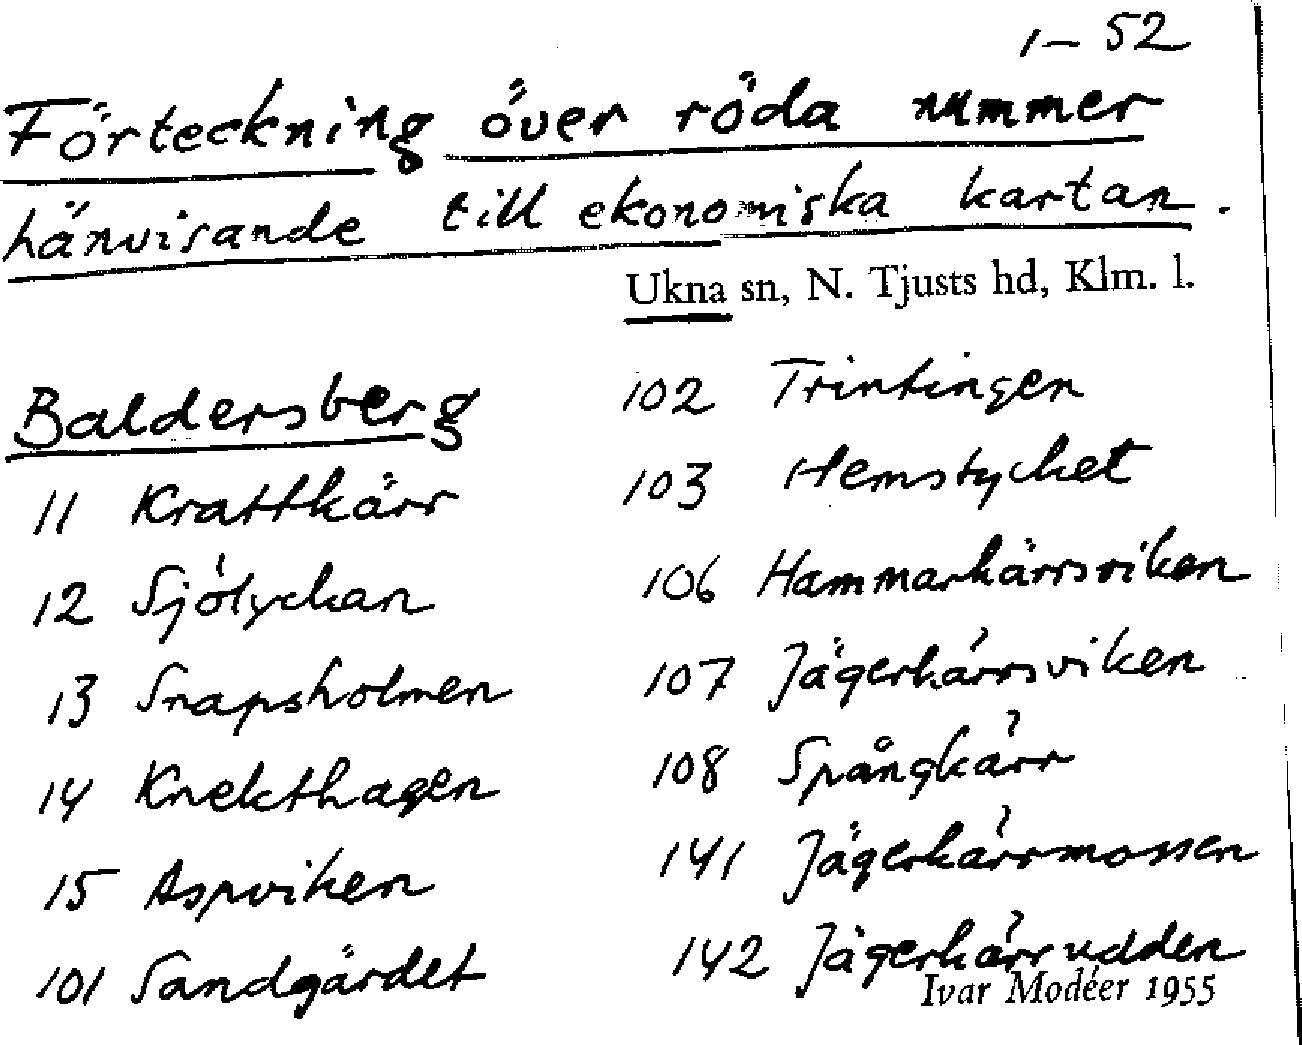 1–52
Förteckning över röda nummer
hänvisande till ekonomiska kartan.
Ukna sn, N. Tjusts hd, Klm. l.
Baldersberg
11 Krattkärr
12 Sjölyckan
13 Snapsholmen
14 Knekthagen
15 Aspviken
101 Sandgärdet
102 Trintingen
103 Hemstycket
106 Hammarkärrsviken
107 Jägerkärrsviken
108 Spångkärr
141 Jägerkärrmossen
142 Jägerkärrudden
Ivar Modéer 1955